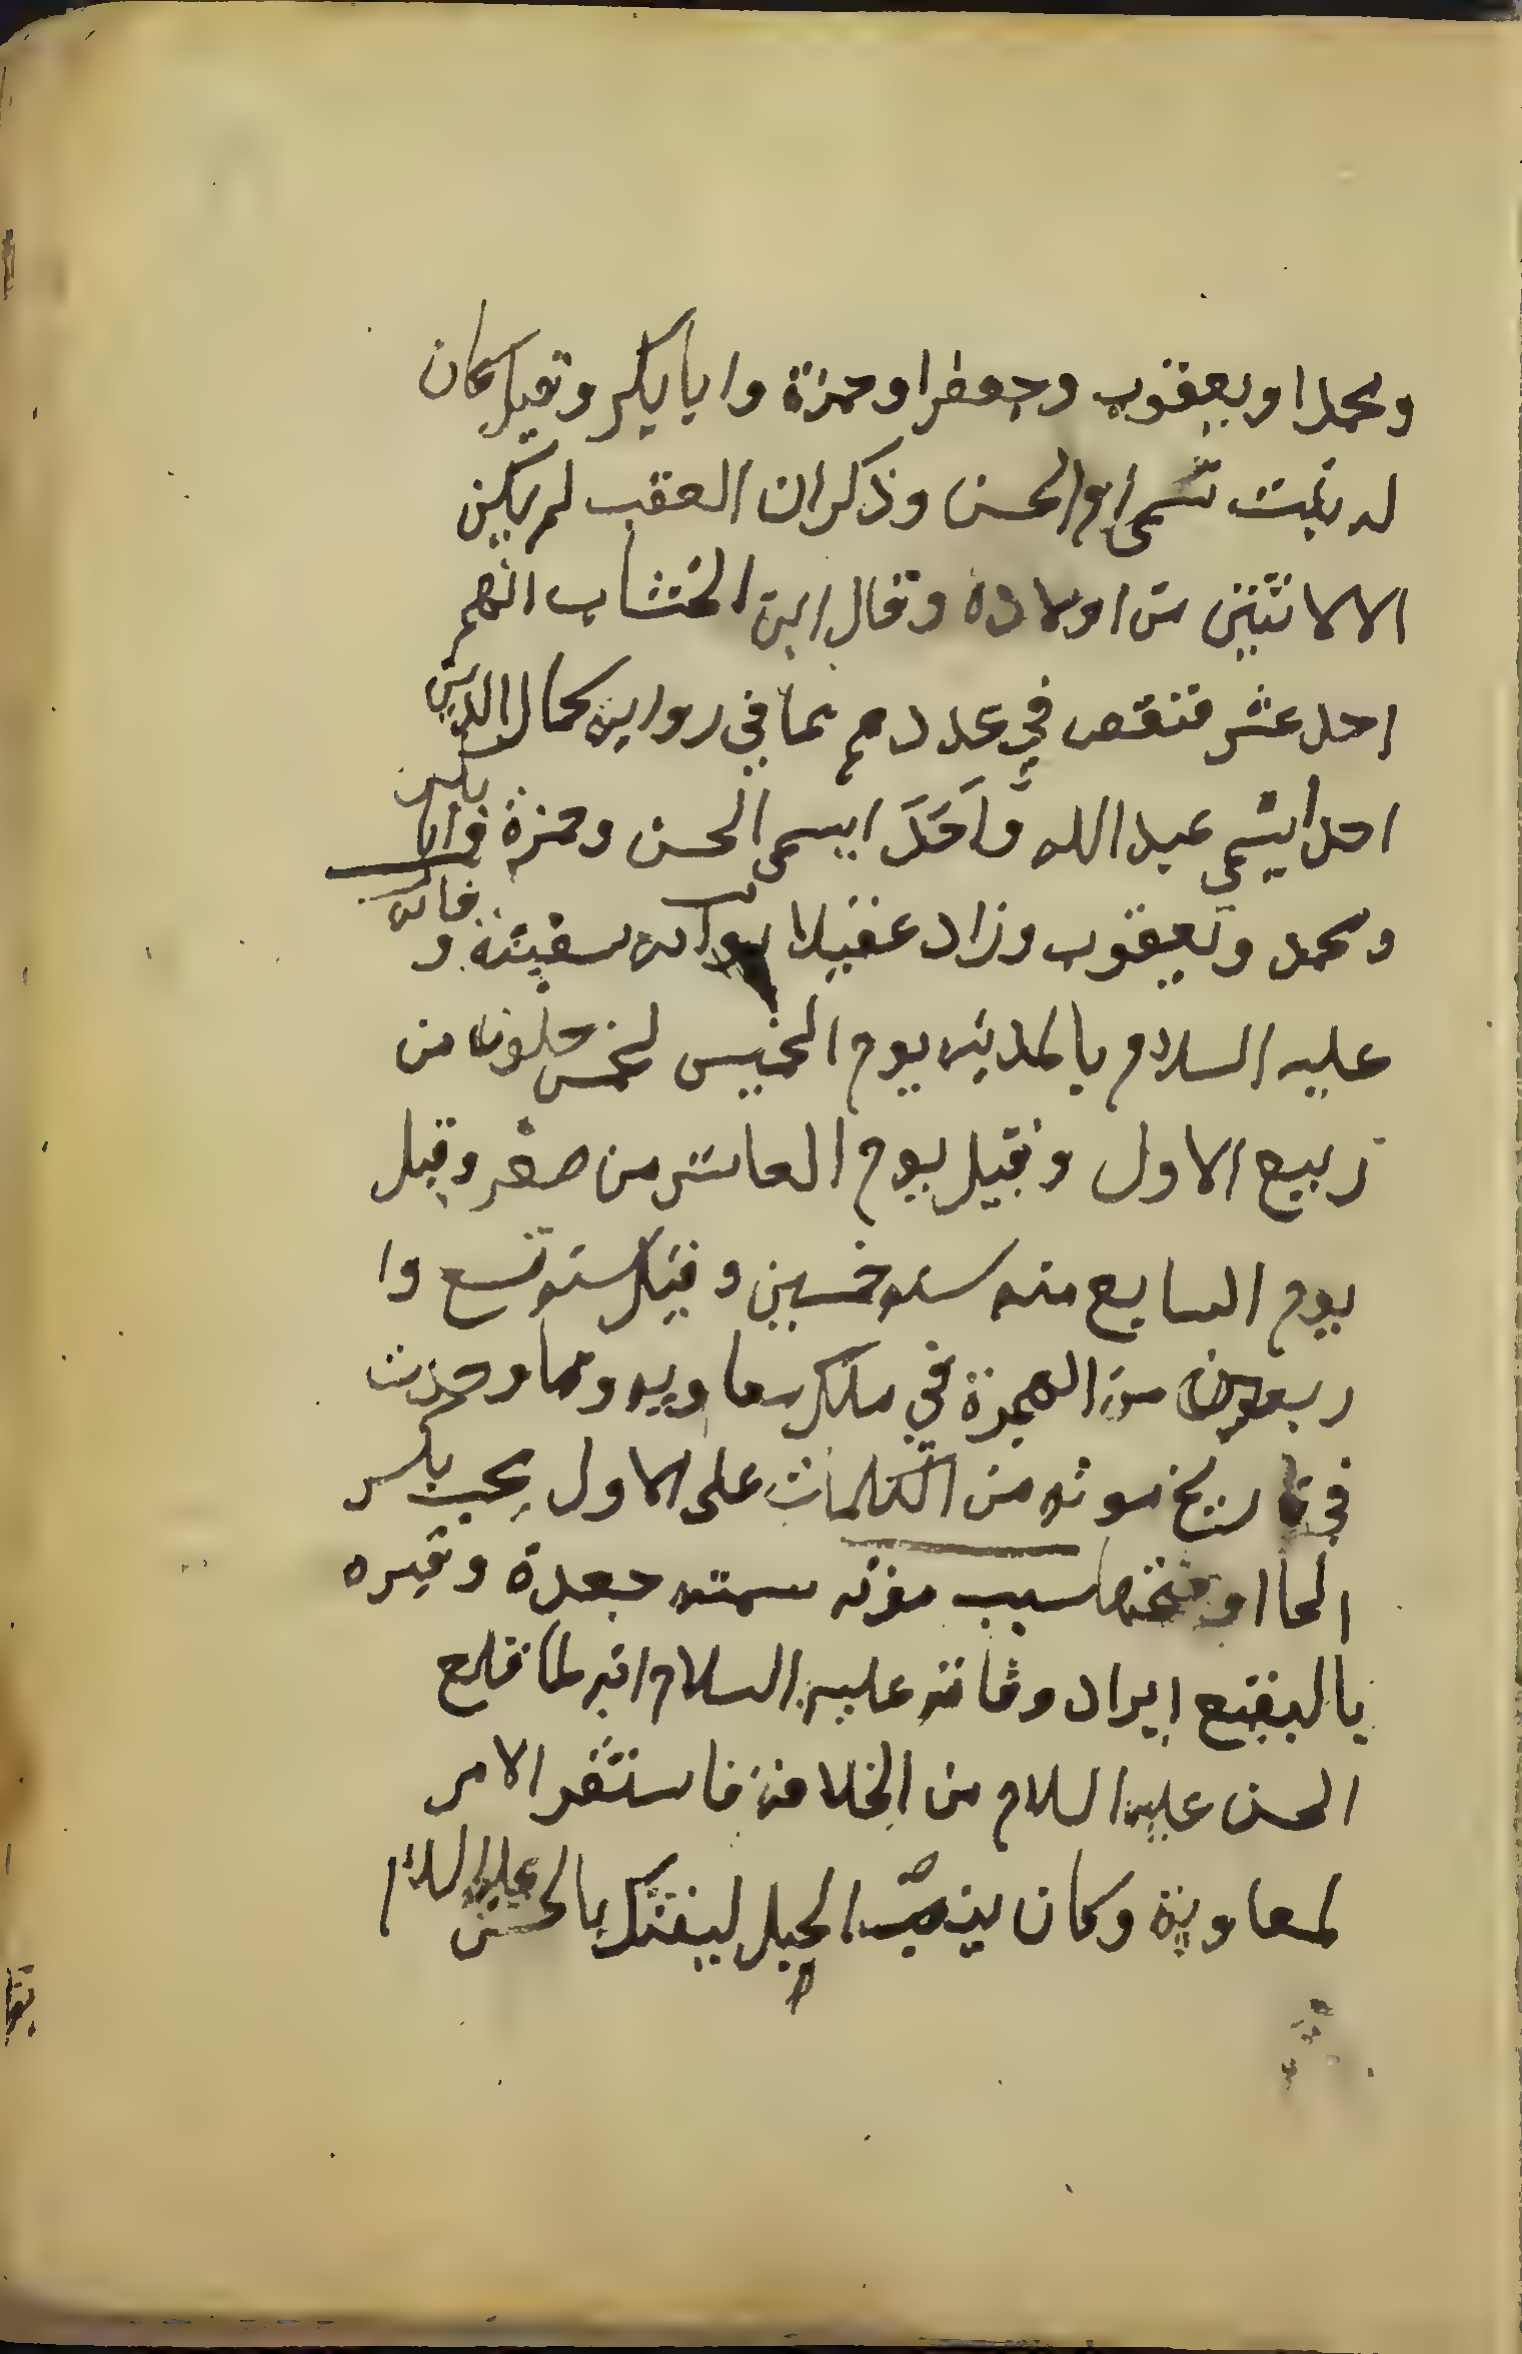 ومحمدا ويعقوب وجعفرا وحمزة وابابكر وقيل كان
له بنت تسمى ام الحسن وذكر ان العقب لم يكن
الا لاثنين من اولاده وقال ابن الخشاب انهم
احد عشر فنقص في عددهم عما في رواية كمال الدين
احدا يسمى عبد الله واحدا يسمى الحسن وحمزة وابا بكر
ومحمد ويعقوب وزاد عقيلا سفينة وفاته
عليه السلام بالمدينه يوم الخميس لخمس خلون من
ربيع الاول وقيل يوم العاشر من صفر وقيل
يوم السابع منه سنه خمسين وقيل سنه تسع وا
ربعون من الهجرة في ملك معاويه ومما وجدت
في تاريخ موته من الكلمات على الاول بحب بكسر
الحا او فتحها سبب موته سمته جعدة وقبره
بالبقيع ايراد وفاته عليه السلام انه لما خلع
الحسن عليه السلام من الخلافة فاستقر الامر
لمعاوية وكان ينصب الحيل ليفتك بالحسن عليه السلام